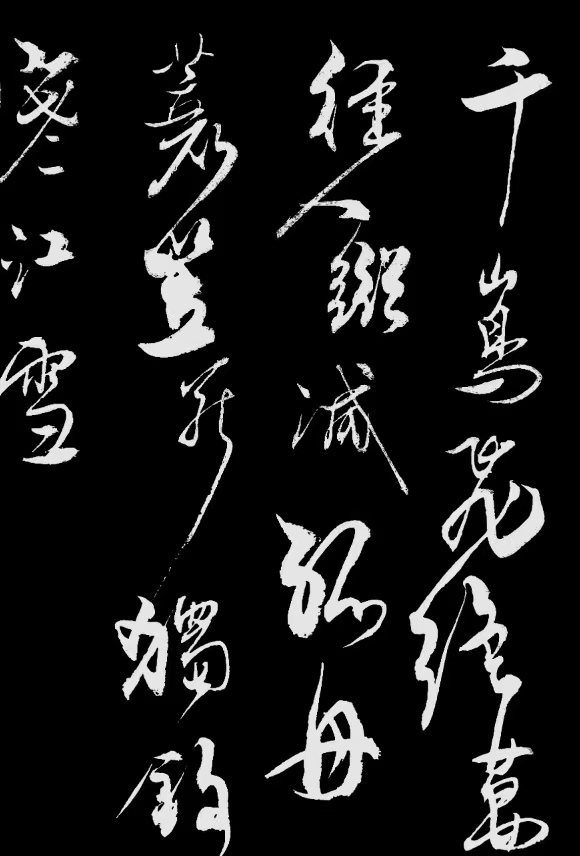 千山鳥飛絕萬
徑人蹤滅孤舟
蓑笠翁獨釣
寒江雪